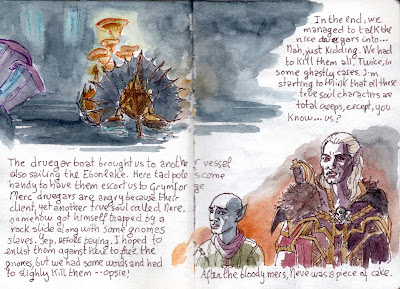 In the end, we
managed to talk the
nice duergars into...
Nah, just kidding. We had
to kill them all. Twice, in
some ghastly cases. I'm
starting to think that all these
true soul characters are
total creeps, except, you
know... us?
The druegar boat brought us to another vessel
also sailing the Ebonlake. Here tadpole
handy to have them escort us to Grymforge
Merc druegars are angry because their
client, yet another true soul called Nere,
somehow got himself trapped by a
rock slide along with some gnomes
slaves. Yep, BEFORE paying. I hoped to
enlist them against Nere to free the
gnomes, but we had some words and had
to slighly kill them -- opsie!
After the bloody mers, Neve was a piece of cake.